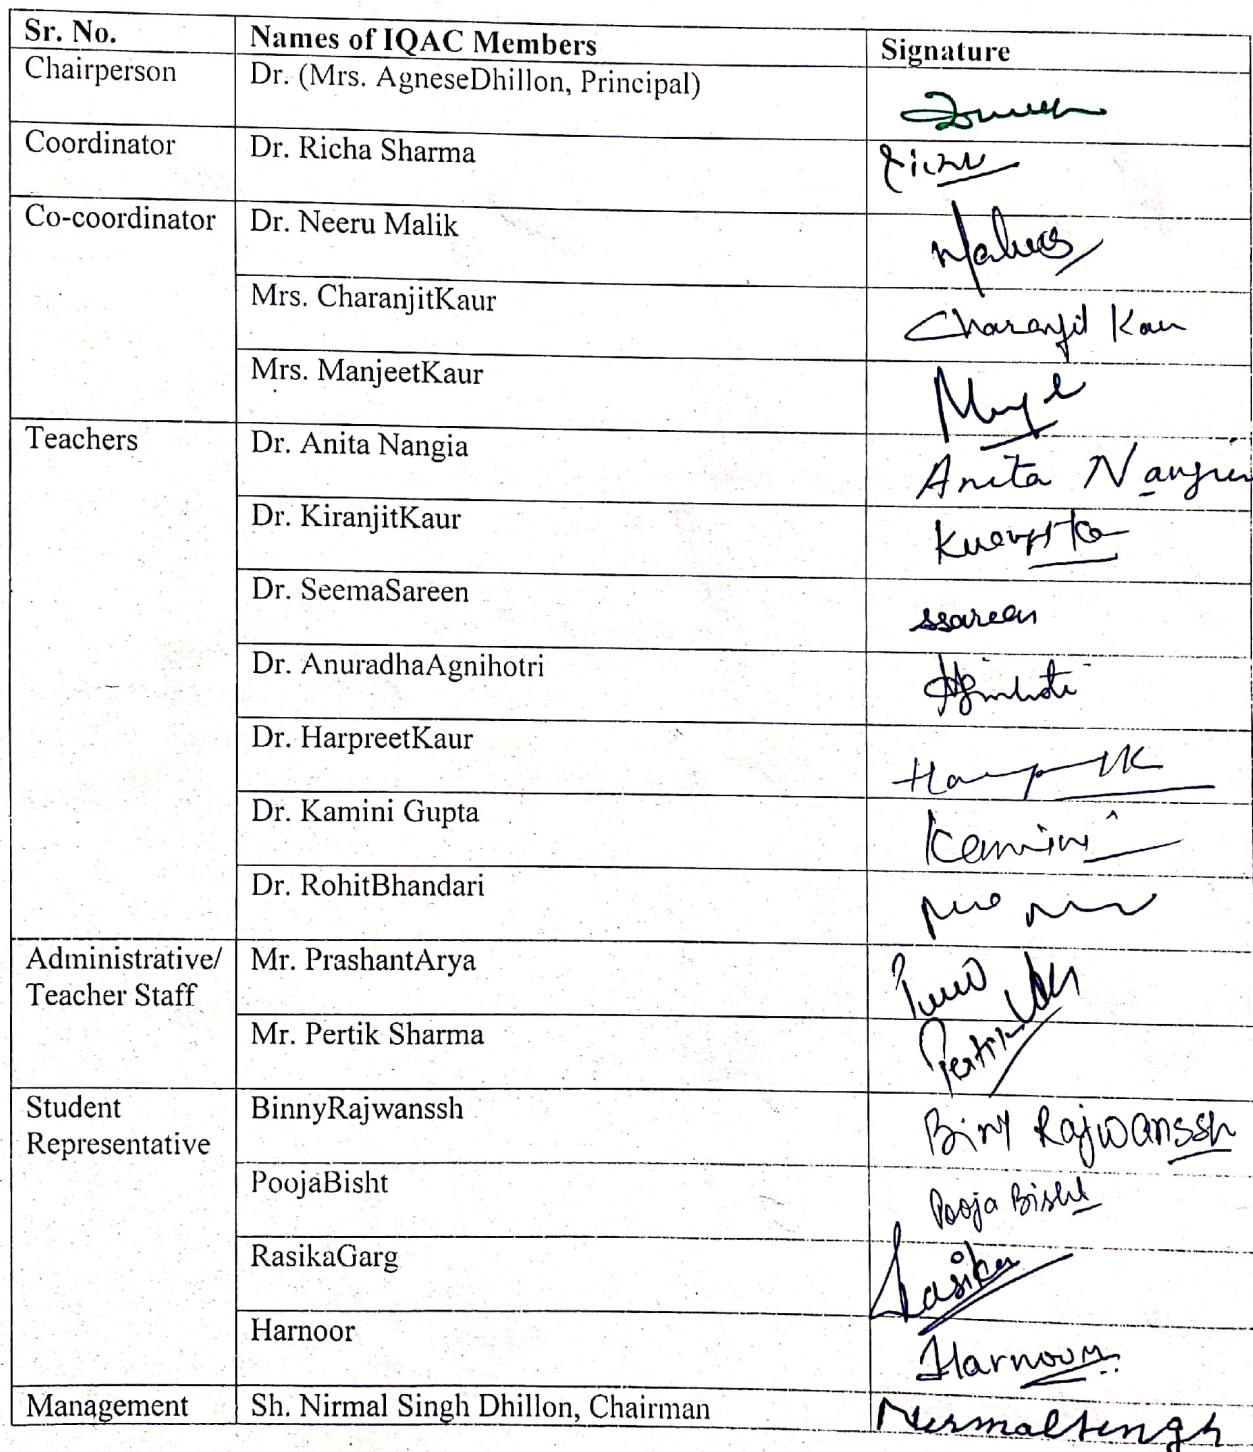 Sr. No. Names of IQAC Members Signature
Chairperson Dr. (Mrs. AgneseDhillon, Principal)
Coordinator Dr. Richa Sharma
Co-coordinator Dr. Neeru Malik
Mrs. CharanjitKaur Charanjit Kaur
Mrs. ManjeetKaur
Teachers Dr. Anita Nangia Anita Nangia
Dr. KiranjitKaur
Dr. SeemaSareen ssareen
Dr. AnuradhaAgnihotri
Dr. HarpreetKaur
Dr. Kamini Gupta Kamini
Dr. RohitBhandari
Administrative/ Mr. PrashantArya
Teacher Staff
Mr. Pertik Sharma Pertik
Student BinnyRajwanssh Biny Rajwanssh
Representative
PoojaBisht Pooja Bisht
RasikaGarg Rasika
Harnoor Harnoor
Management Sh. Nirmal Singh Dhillon, Chairman Nirmalsingh